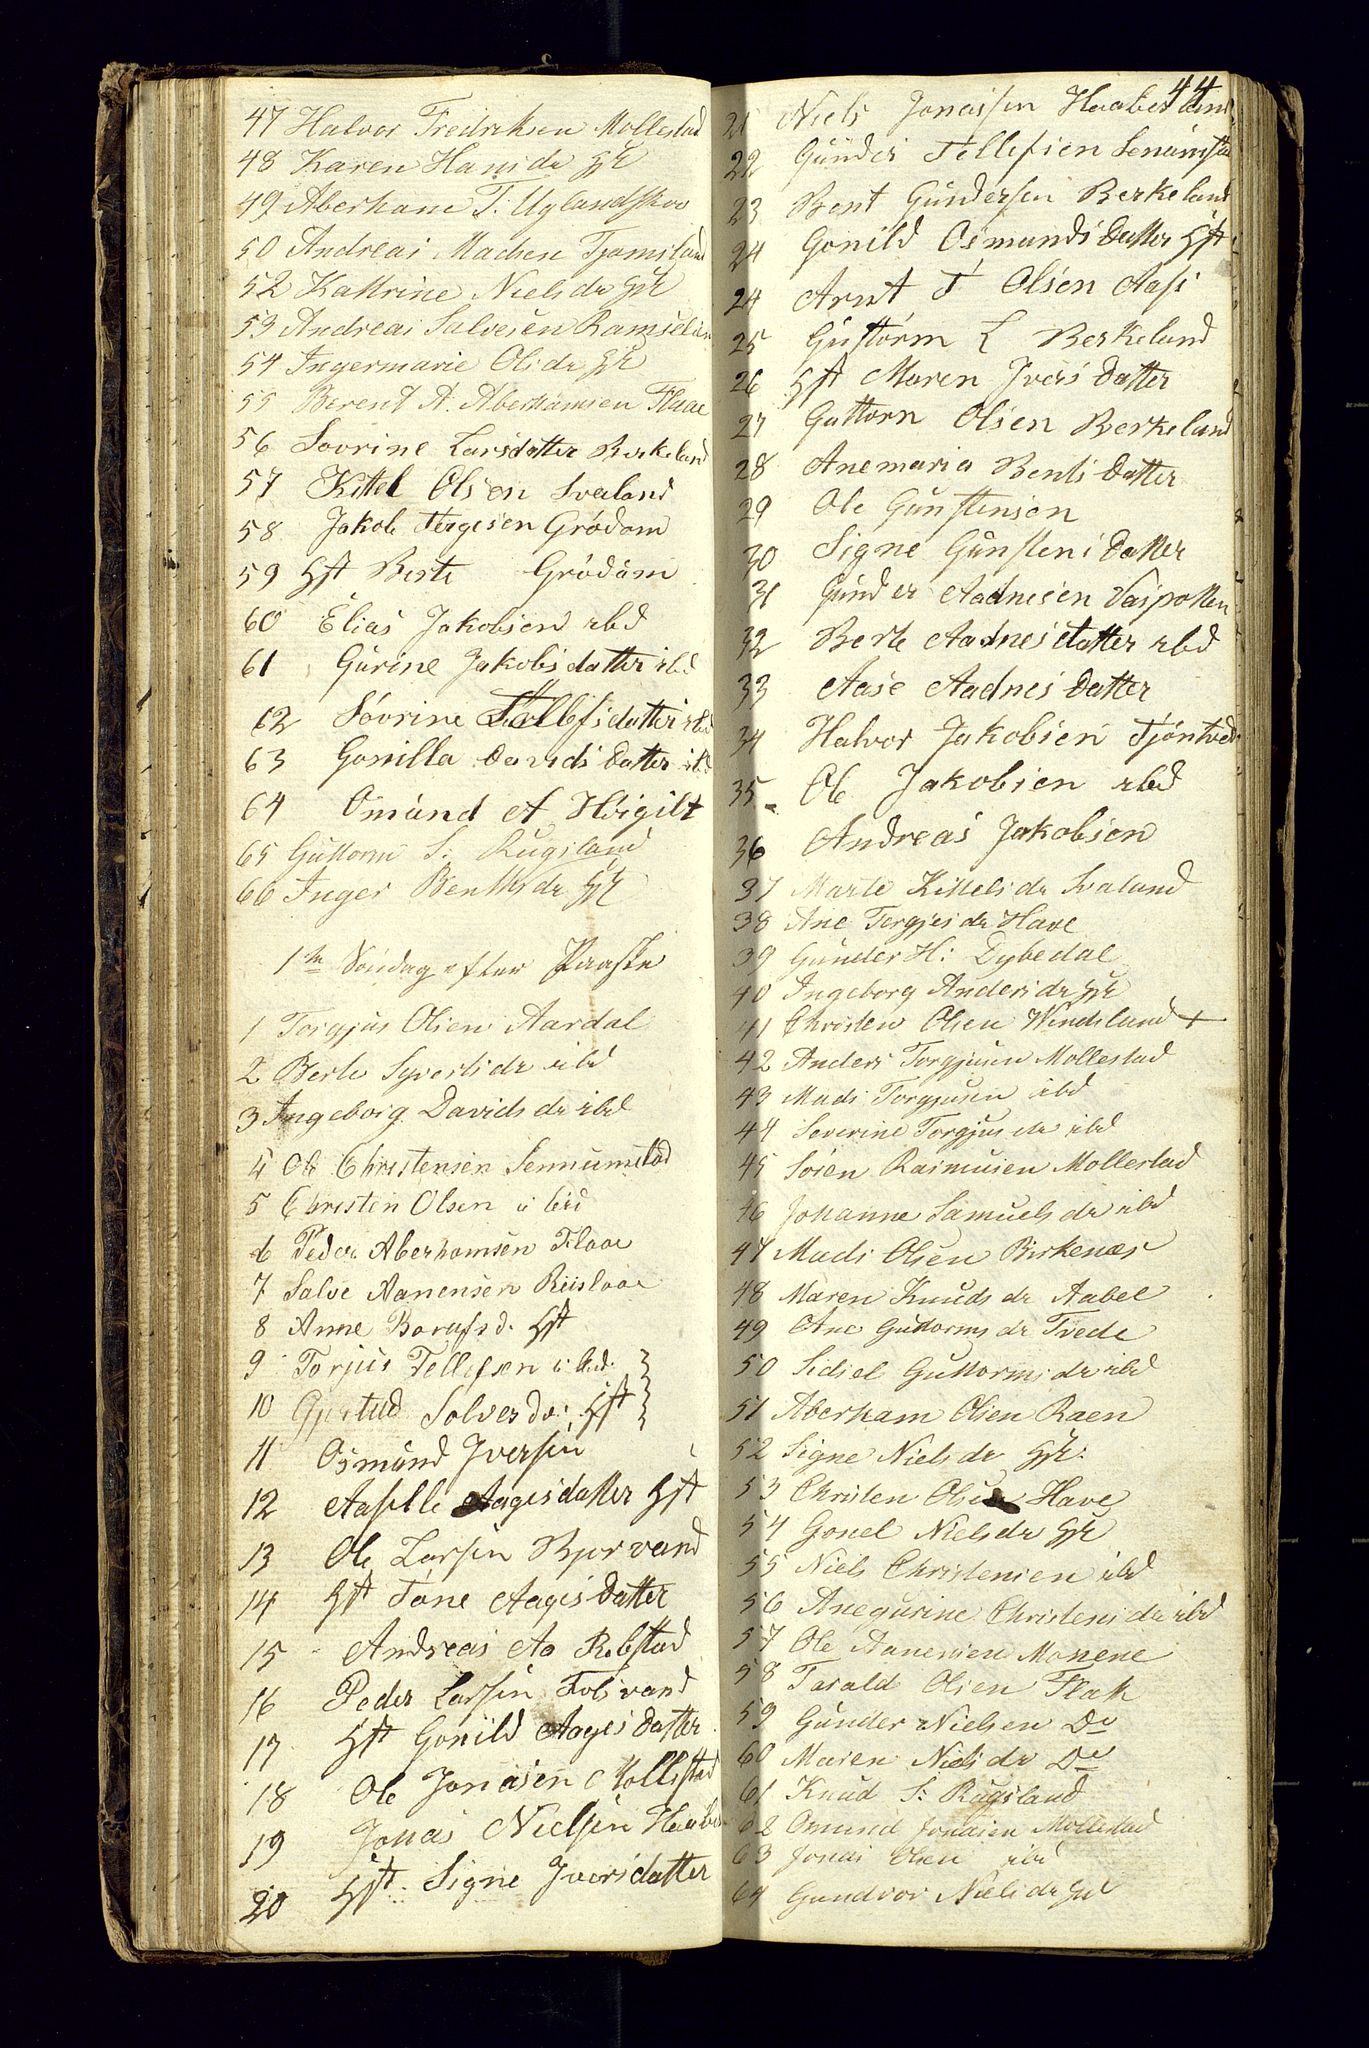 47 Halvor Fredriksen Mollestad
48 Karen Hansdr Hst
49 Aberham T: Uglandskov
50 Andreas Madsen Tjomsland
52 Kattrine Nielsdr Hst
53 Andreas Salvesen Ramseland
54 Ingermarie Olsdr Hst
55 Berent A. Aberhamsen Flaae
56 Sovrine Larsdatter Berkeland
57 Kittel Olsen Svaland
58 Jakob Tergesen Grødom
59 Hst Berte Grødum
60 Elias Jakobsen ibd
61 Gurine Jakobsdatter ibd
62 Søvrine Tellefsdatter ibd
63 Gonilla Davidsdatter ibd
64 Omund A Høigilt
65 Guttorm S: Rugsland
66 Inger Bentsdr Hst
1te Søndag efter Paaske
1 Torgjus Olsen Aardal
2 Berte Syvertsdr ibd
3 Ingeborg Davidsdr ibd
4 Ole Christensen Sennumstad
5 Christen Olsen ibid
6 Peder Aberhamsen Flaae
7 Salve Aanensen Riislaae
8 Anne Barufsd. Hst
9 Torjus Tellefsen ibid.
10 Gjertud Solvesdr. Hst
11 Osmund Iversen
12 Aasille Aagesdatter Hst
13 Ole Larsen Bjorvand
14 Hst Tone Aagesdatter
15 Andreas Aa Robstad
16 Peder Larsen Fosvand
17 Hst Gonild Aagesdatter
18 Ole Jonasen Mollestad
19 Jonas Nielsen
20 Hst. Signe Iversdatter
44
21 Niels Jonassen Haabesland
22 Gunder Tellefsen Senumstad
23 Bent Gundersen Berkeland
24 Gonild Osmundsdatter Hst
24 Arnt T Olsen Aas
25 Guttorm L Berkeland
26 Hst Maren Iversdatter
27 Guttorn Olsen Berkeland
28 Anemaria Bentsdatter
29 Ole Gunstensen
30 Signe Gunstensdatter
31 Gunder Aadnesen Vaspotten
32 Berte Aadnesdatter ibd
33 Aase Aadnesdatter
34 Halvor Jakobsen Tjøntved
35 Ole Jakobsen ibd
36 Andreas Jakobsen
37 Marte Kittelsdr Svaland
38 Ane Torgjesdr Have
39 Gunder H: Dybedal
40 Ingeborg Andersdr Hst
41 Christen Olsen Windsland +
42 Anders Torgjusen Mollestad
43 Mads Torgjusen ibd
44 Severine Torgjusdr ibd
45 Søren Rasmusen Mollestad
46 Johanne Samuelsdr ibd
47 Mads Olsen Birkenæs
48 Maren Knudsdr Aabel
49 Ane Guttormsdr Tvede
50 Sidsel Guttormsdr ibd
51 Aberham Olsen Raen
52 Signe Nielsdr Hst.
53 Christen Olsen Have
54 Gonel Nielsdr Hst
55 Niels Christensen ibd
56 Anegurine Christensdr ibd
57 Ole Aanensen Monene
58 Tarald Olsen Flak
59 Gunder Nielsen Do
60 Maren Nielsdr Do
61 Knud S: Rugsland
62 Omund Jonasen Mollestad
63 Jonas Olsen ibd
64 Gundvor Nielsdr Hst